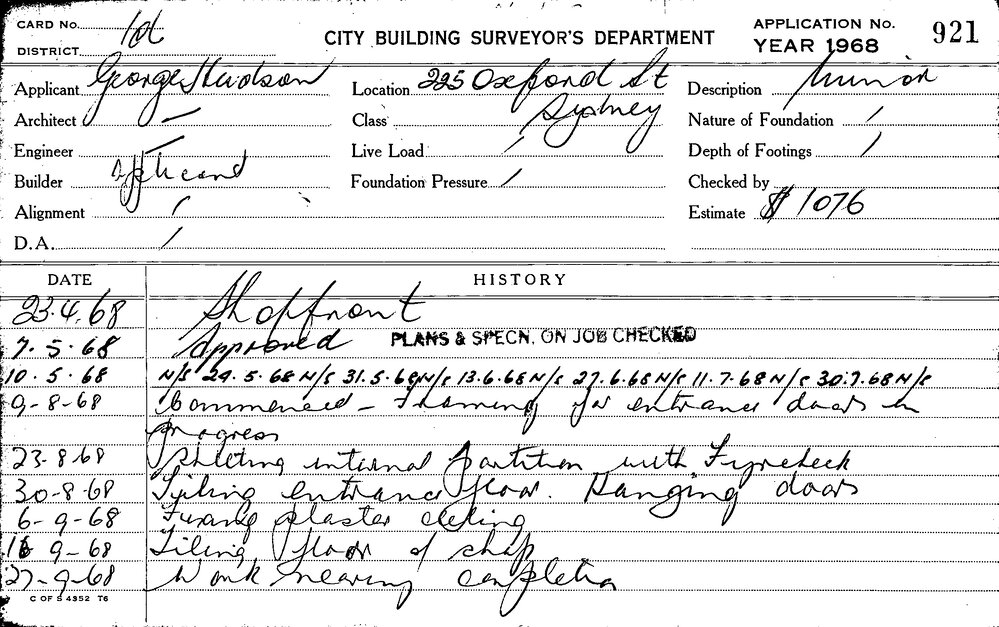 CARD No. 1d
CITY BUILDING SURVEYOR'S DEPARTMENT
APPLICATION No. 921
DISTRICT
YEAR 1968
Applicant George Hudson
Location 225 Oxford St
Description Minor
Architect —
Class Sydney
Nature of Foundation /
Engineer —
Live Load /
Depth of Footings /
Builder Applicant
Foundation Pressure /
Checked by
Alignment /
Estimate $ 1076
D.A. /
DATE HISTORY
23.4.68 Shopfront
7.5.68 Approved PLANS & SPECN. ON JOB CHECKED
10.5.68 N/S 24.5.68 N/S 31.5.68 N/S 13.6.68 N/S 27.6.68 N/S 11.7.68 N/S 30.7.68 N/S
9-8-68 Commenced - Framing for entrance doors in
progress
23-8-68 Sheeting internal partition with Fyrcheck
30-8-68 Tiling entrance floor. Hanging doors
6-9-68 Fixing plaster ceiling
16 9-68 Tiling floor of shop
27-9-68 Work nearing completion
C OF S 4352 T6